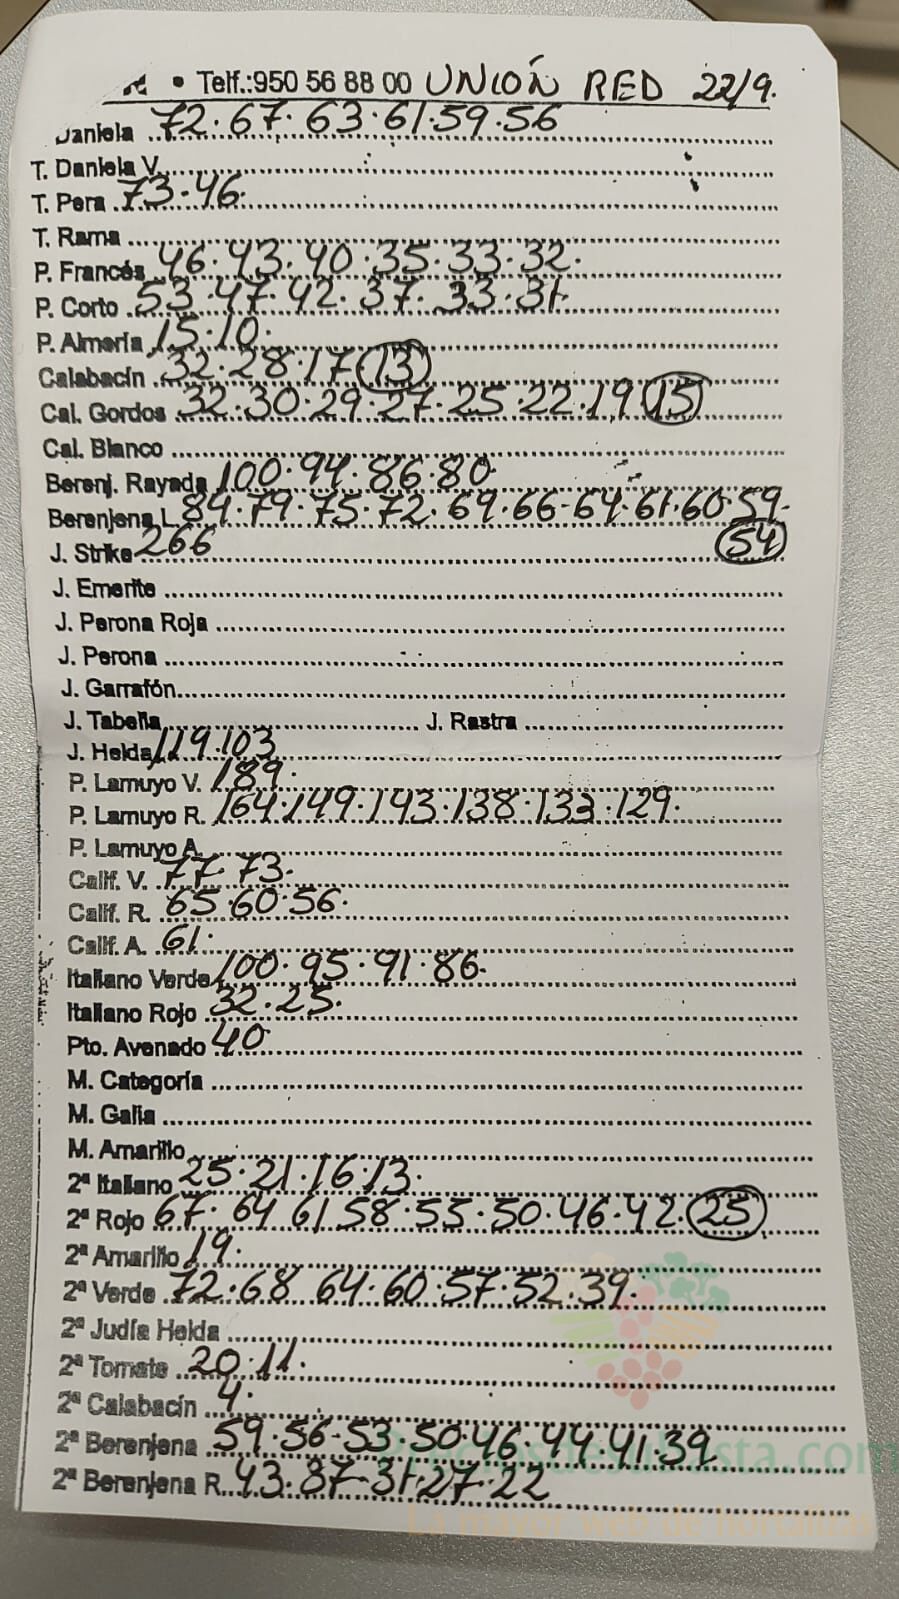 • Telf.:950 56 88 00 UNIÓN RED 22/9.
Daniela 72.67.63.61.59.56
T. Daniela V.
T. Pera 73.46.
T. Rama
P. Francés 46.43.40.35.33.32.
P. Corto 53.47.42.37.33.31.
P. Almería 15.10.
Calabacín 32.28.17 (13)
Cal. Gordos 32.30.29.27.25.22.19 (15)
Cal. Blanco
Berenj. Rayada 100.94.86.80
Berenjena L. 84.79.75.72.69.66-64.61.60.59-
J. Strike 266 (54)
J. Emerite
J. Perona Roja
J. Perona
J. Garrafón
J. Tabella J. Rastra
J. Helda 119.103
P. Lamuyo V. 189.
P. Lamuyo R. 164.149.143.138.133.129.
P. Lamuyo A.
Calif. V. 77.73.
Calif. R. 65.60.56.
Calif. A. 61.
Italiano Verde 100.95.91.86.
Italiano Rojo 32.25.
Pto. Avenado 40
M. Categoría
M. Galia
M. Amarillo
2ª Italiano 25.21.16.13.
2ª Rojo 67.64 61 58.55.50.46.42. (25)
2ª Amarillo 19.
2ª Verde 72.68 64.60.57.52.39.
2ª Judía Helda
2ª Tomate 20.11.
2ª Calabacín 4.
2ª Berenjena 59.56-53.50.46.44.41.39
2ª Berenjena R. 43.37-31.27.22
Preciosdesubasta.com
La mayor web de hortalizas